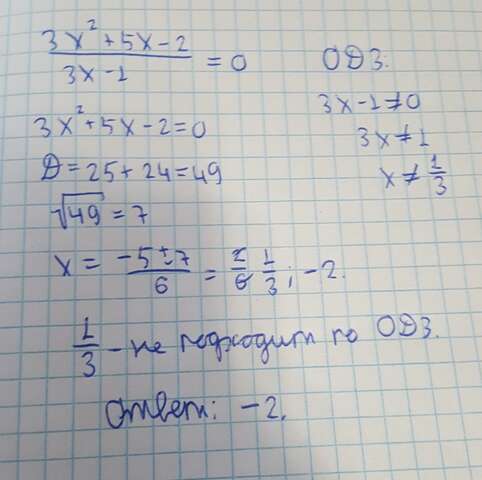 3x² + 5x - 2 / 3x - 1 = 0
ОДЗ:
3x - 1 ≠ 0
3x ≠ 1
x ≠ 1/3
3x² + 5x - 2 = 0
D = 25 + 24 = 49
√49 = 7
x = -5 ± 7 / 6 = 2/6 1/3; -2.
1/3 - не подходит по ОДЗ.
Ответ: -2.